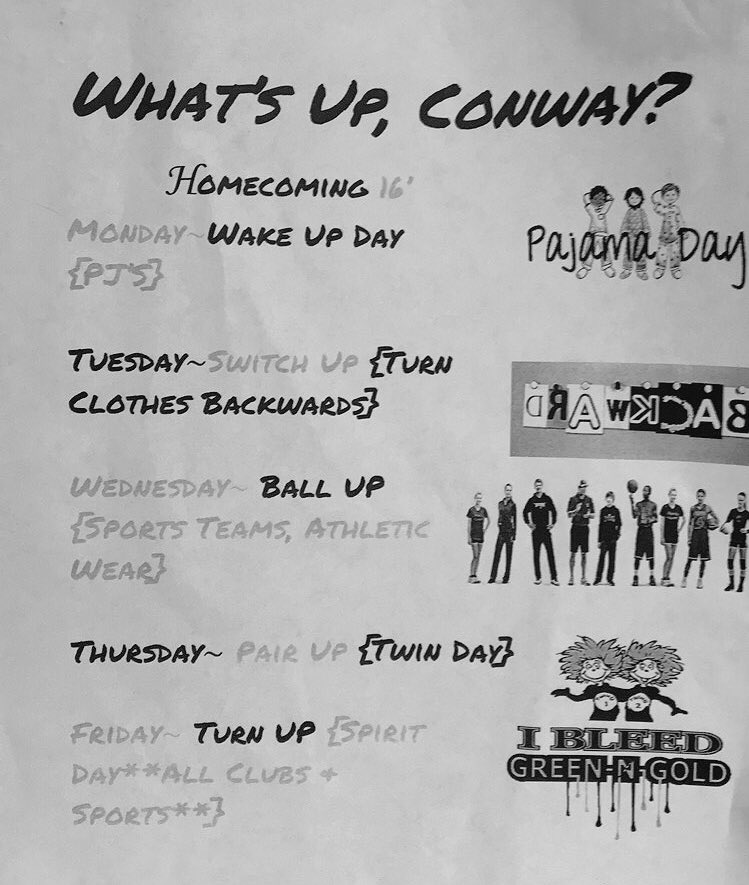 What's Up, Conway?
Homecoming 16'
Monday~Wake Up Day
{PJ's}
Pajama Day
Tuesday~Switch Up {Turn
Clothes Backwards}
BACKWARD
Wednesday~ Ball Up
{Sports Teams, Athletic
Wear}
Thursday~ Pair Up {Twin Day}
Friday~ Turn Up {Spirit
Day**All Clubs +
Sports**}
I BLEED
GREEN-N-GOLD